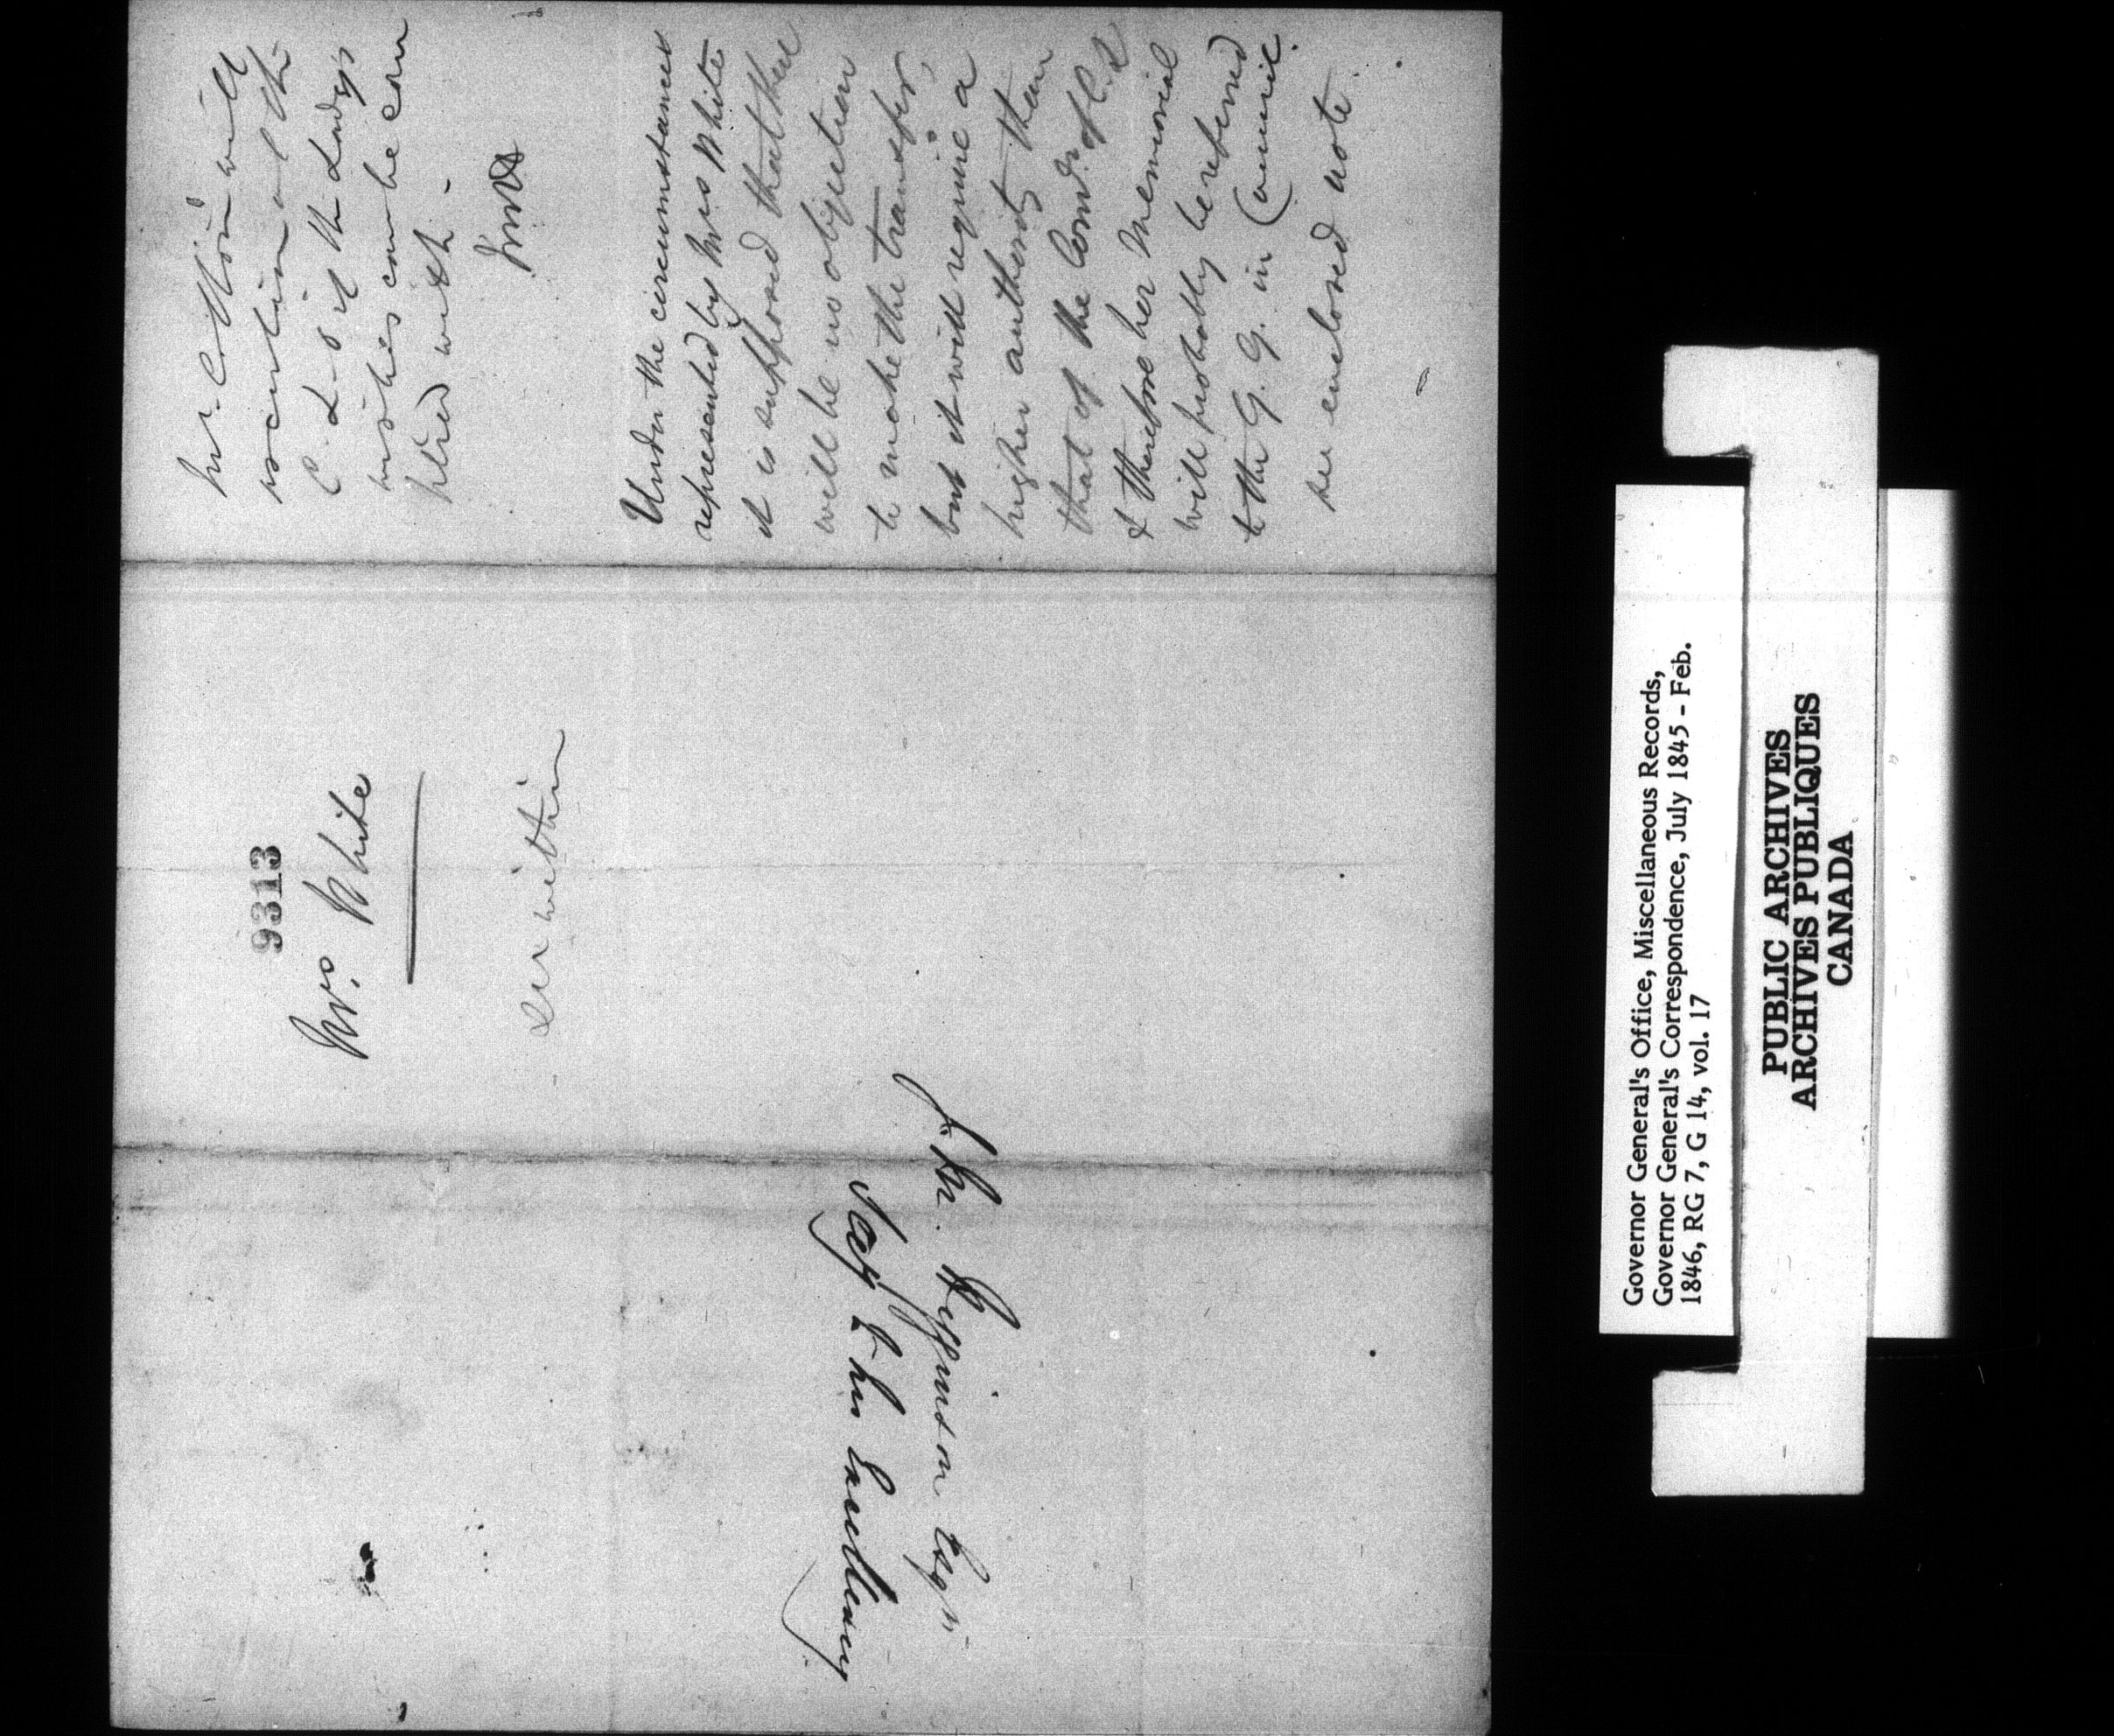 Mr. Cotton will
ascertain at the
C. L. O. if the Ladys
wishes can be com
plied with -
JMH
Under the circumstances
represented by Mrs White
it is supposed that there
will be no objection
to make the transfer,
but it will require a
higher authority than
that of the Comr. of C. L
& therefore her Memorial
will probably be referred
to the G. G. in Council.
see enclosed note
9313
Mrs. White
See within
J. M. Higginson Esqr
Secy to his Excellency
Governor General's Office, Miscellaneous Records,
Governor General's Correspondence, July 1845 - Feb.
1846, RG 7, G 14, vol. 17
PUBLIC ARCHIVES
ARCHIVES PUBLIQUES
CANADA